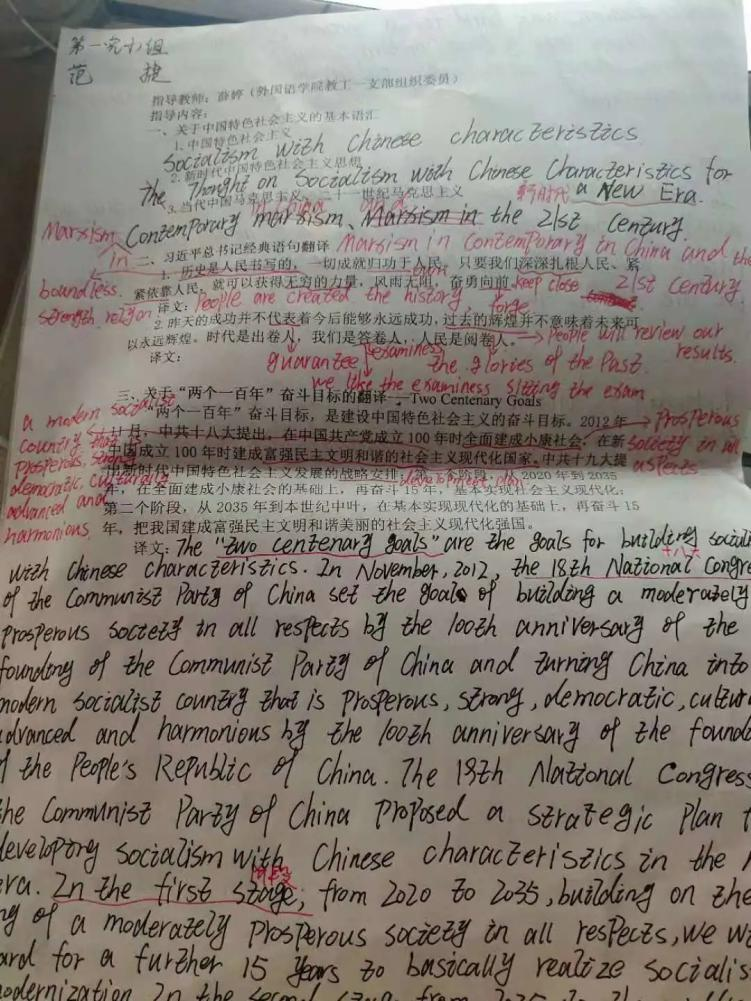 第一党小组
范 捷
指导教师：薛婷（外国语学院教工一支部组织委员）
指导内容：
一、关于中国特色社会主义的基本语汇
1. 中国特色社会主义
Socialism with Chinese characteristics
2. 新时代中国特色社会主义思想
The Thought on Socialism with Chinese Characteristics for
新时代 a New Era.
3. 当代中国马克思主义、二十一世纪马克思主义
in China and
Contemporary marxism、Marxism in the 21st Century.
Marxism
in
二、习近平总书记经典语句翻译
Marxism in Contemporary in China and the
21st Century.
1. 历史是人民书写的，一切成就归功于人民。只要我们深深扎根人民、紧
boundless
紧依靠人民，就可以获得无穷的力量，风雨无阻，奋勇向前。
keep close
strength
译文：People are created the history, forge
2. 昨天的成功并不代表着今后能够永远成功，过去的辉煌并不意味着未来可
以永远辉煌。时代是出卷人，我们是答卷人，人民是阅卷人。
People will review our
results.
译文：
guarantee examiness the glories of the Past.
we like the examiness sitting the exam
三、关于“两个一百年”奋斗目标的翻译 Two Centenary Goals
“两个一百年”奋斗目标，是建设中国特色社会主义的奋斗目标。2012年
11月，中共十八大提出，在中国共产党成立100年时全面建成小康社会，在新
中国成立100年时建成富强民主文明和谐的社会主义现代化国家。中共十九大提
出新时代中国特色社会主义发展的战略安排，第一个阶段，从2020年到2035
年，在全面建成小康社会的基础上，再奋斗15年，基本实现社会主义现代化；
第二个阶段，从2035年到本世纪中叶，在基本实现现代化的基础上，再奋斗15
年，把我国建成富强民主文明和谐美丽的社会主义现代化强国。
Prosperous
society in all
aspects
development plan
a modern socialist
country that is
prosperous, strong
democratic, culturally
advanced and
harmonious
译文：The "two centenary goals" are the goals for building sociali
with Chinese characteristics. In November, 2012, the 18th National Congre
十八大
of the Communist Party of China set the goal of building a moderately
Prosperous society in all respects by the 100th anniversary of the
founding of the Communist Party of China and turning China into
modern socialist country that is prosperous, strong, democratic, cultur
advanced and harmonious by the 100th anniversary of the found
the People's Republic of China. The 19th National Congress
the Communist Party of China proposed a strategic plan
developing socialism with Chinese characteristics in the
era. In the first stage, from 2020 to 2035, building on the
阶段
ng of a moderately prosperous society in all respects, we w
ard for a further 15 years to basically realize socialis
modernization In the second